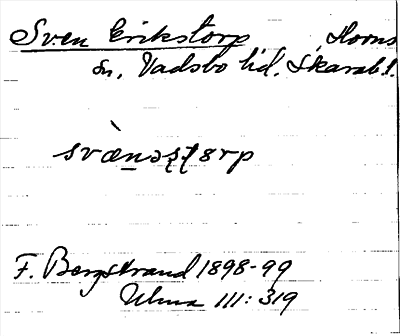 Sven Erikstorp, Horns
sn, Vadsbo hd. Skarab. l.
svæ̀nəştɵrp
F. Bergstrand 1898-99
Ulma 111:319